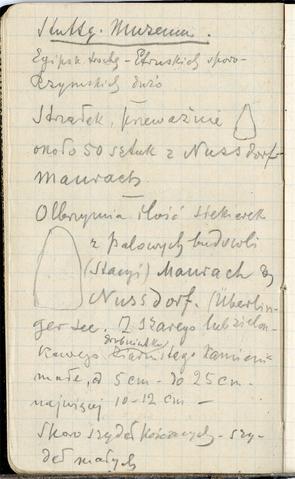 Stuttg. Muzeum.
Egipsk. trochę - Etruskich sporo -
Rzymskich dużo
Strzałek, przeważnie
około 50 sztuk z Nussdorf
Maurach
Olbrzymia ilość siekierek
z palowych budowli
(Stacyi) Maurach &
Nussdorf. (Überlin-
ger See. Z szarego lub zielon-
kawego drobniutko ziarnistego kamienia
małe, od 5 cm - do 25 cm -
najwięcej 10-12 cm -
Sporo szydeł kościanych - szy-
deł małych